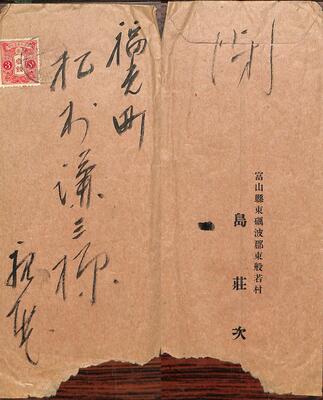 福光町
松村謙三様
親展
3
富山縣東礪波郡東般若村
島荘次